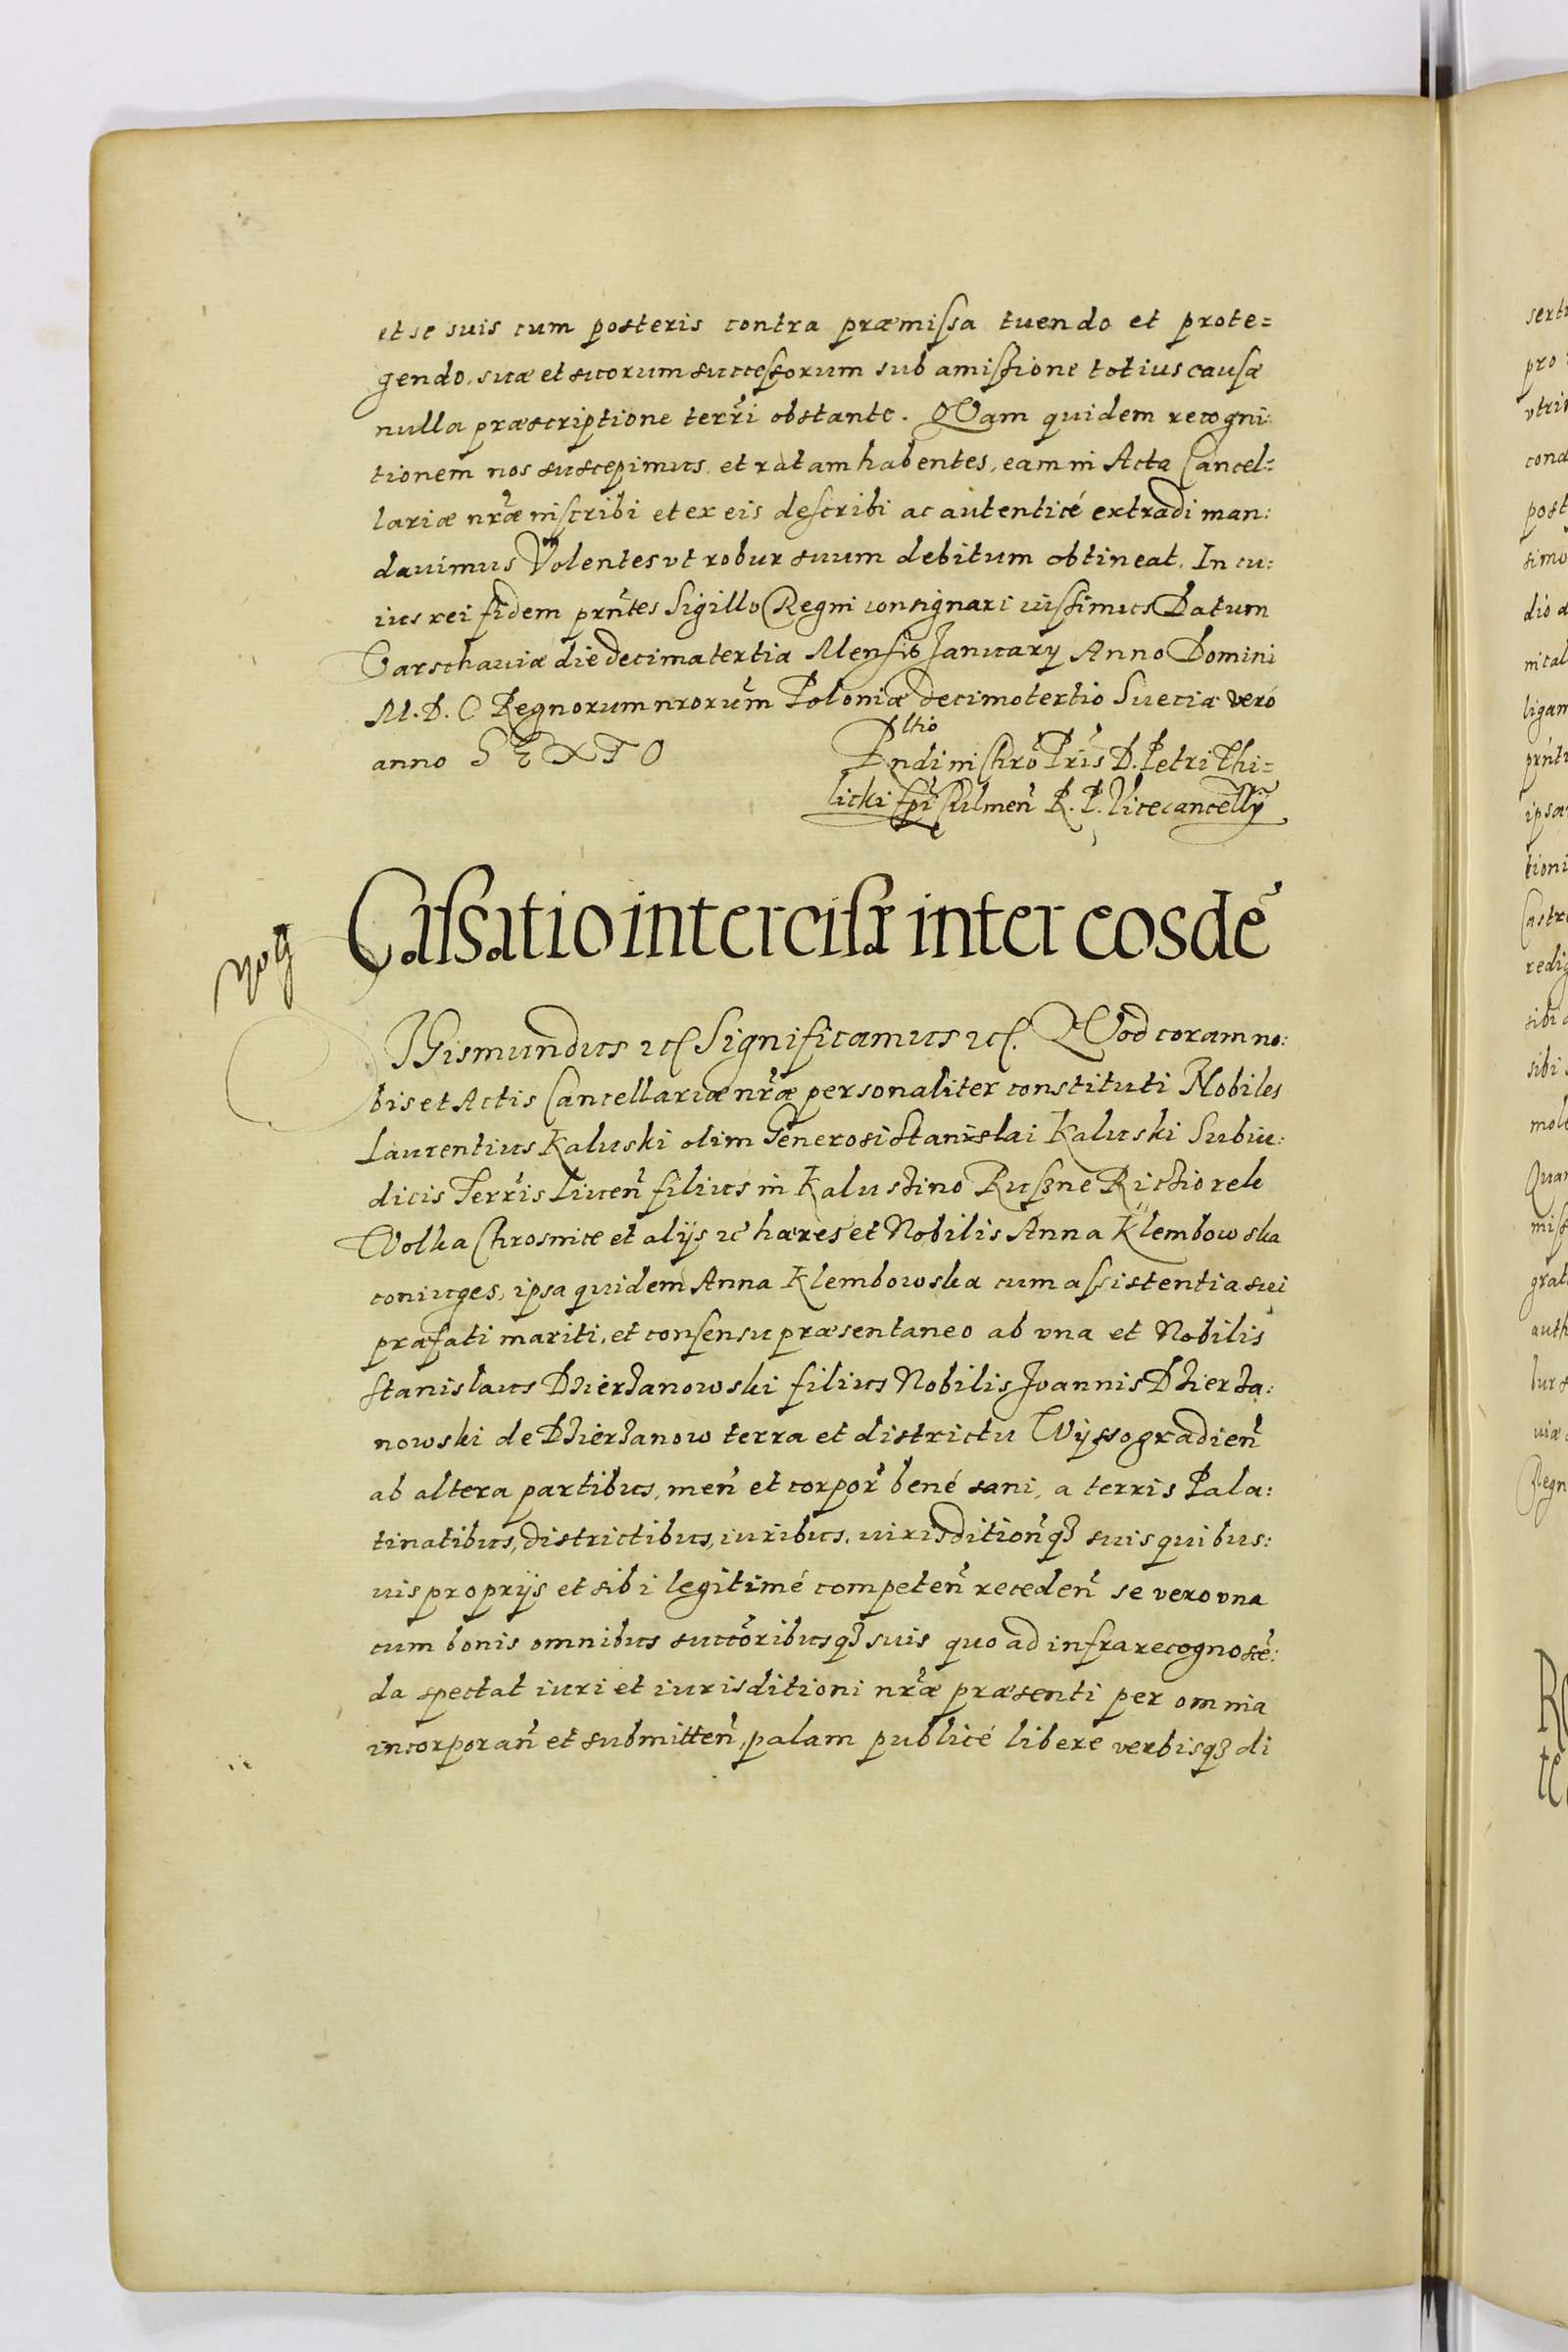 et se suis cum posteris contra præmissa tuendo et prote=
gendo, suæ et suorum successorum sub amissione totius causæ
nulla præscriptione terri obstante. QVam quidem recogni:
tionem nos suscepimus, et ratam habentes, eam in Acta Cancel:
lariæ nrãe inscribi et ex eis describi ac autenticé extradi man:
dauimus Volentes vt robur suum debitum obtineat. In cu:
ius rei fidem prntes Sigillo Regni consignari iussimus Datum
Varschauiæ die decima tertia Mensis January Anno Domini
M.D.C Regnorum nrorum Poloniæ decimotertio Sueciæ veró
anno SEXTO
Rltio
Rndi in Chro Pris D. Petri Thi=
licki Epi Culmen R. P. Vicecancellÿ
Cassatio intercisæ inter eosdẽ
SIGismundus etc Significamus etc. QVod coram no:
bis et Actis Cancellariæ nrãe personaliter constituti Nobiles
Laurentius Kaluski olim Generosi Stanislai Kaluski Subiu:
dicis Terris Liuen filius in Kaluszino Ruszne Richiorek
Wolka Chrosnice et alijs etc hæres et Nobilis Anna Klembowska
coniuges, ipsa quidem Anna Klembowska cum assistentia sui
præfati mariti, et consensu præsentaneo ab vna et Nobilis
Stanislaus Dzierzanowski filius Nobilis Joannis Dzierza:
nowski de Dzierzanow terra et districtu Wyssogradien
ab altera partibus, men et corpor bené sani, a terris Pala:
tinatibus, districtibus, iuribus, iurisdition̄q3 suis quibus:
uis proprijs et sibi legitimé competen receden se vero vna
cum bonis omnibus succoribusq3 suis quo ad infra recognoscẽ:
da spectat iuri et iurisditioni nrãe præsenti per omnia
incorporan et submitten, palam publicé libere verbisq3 di